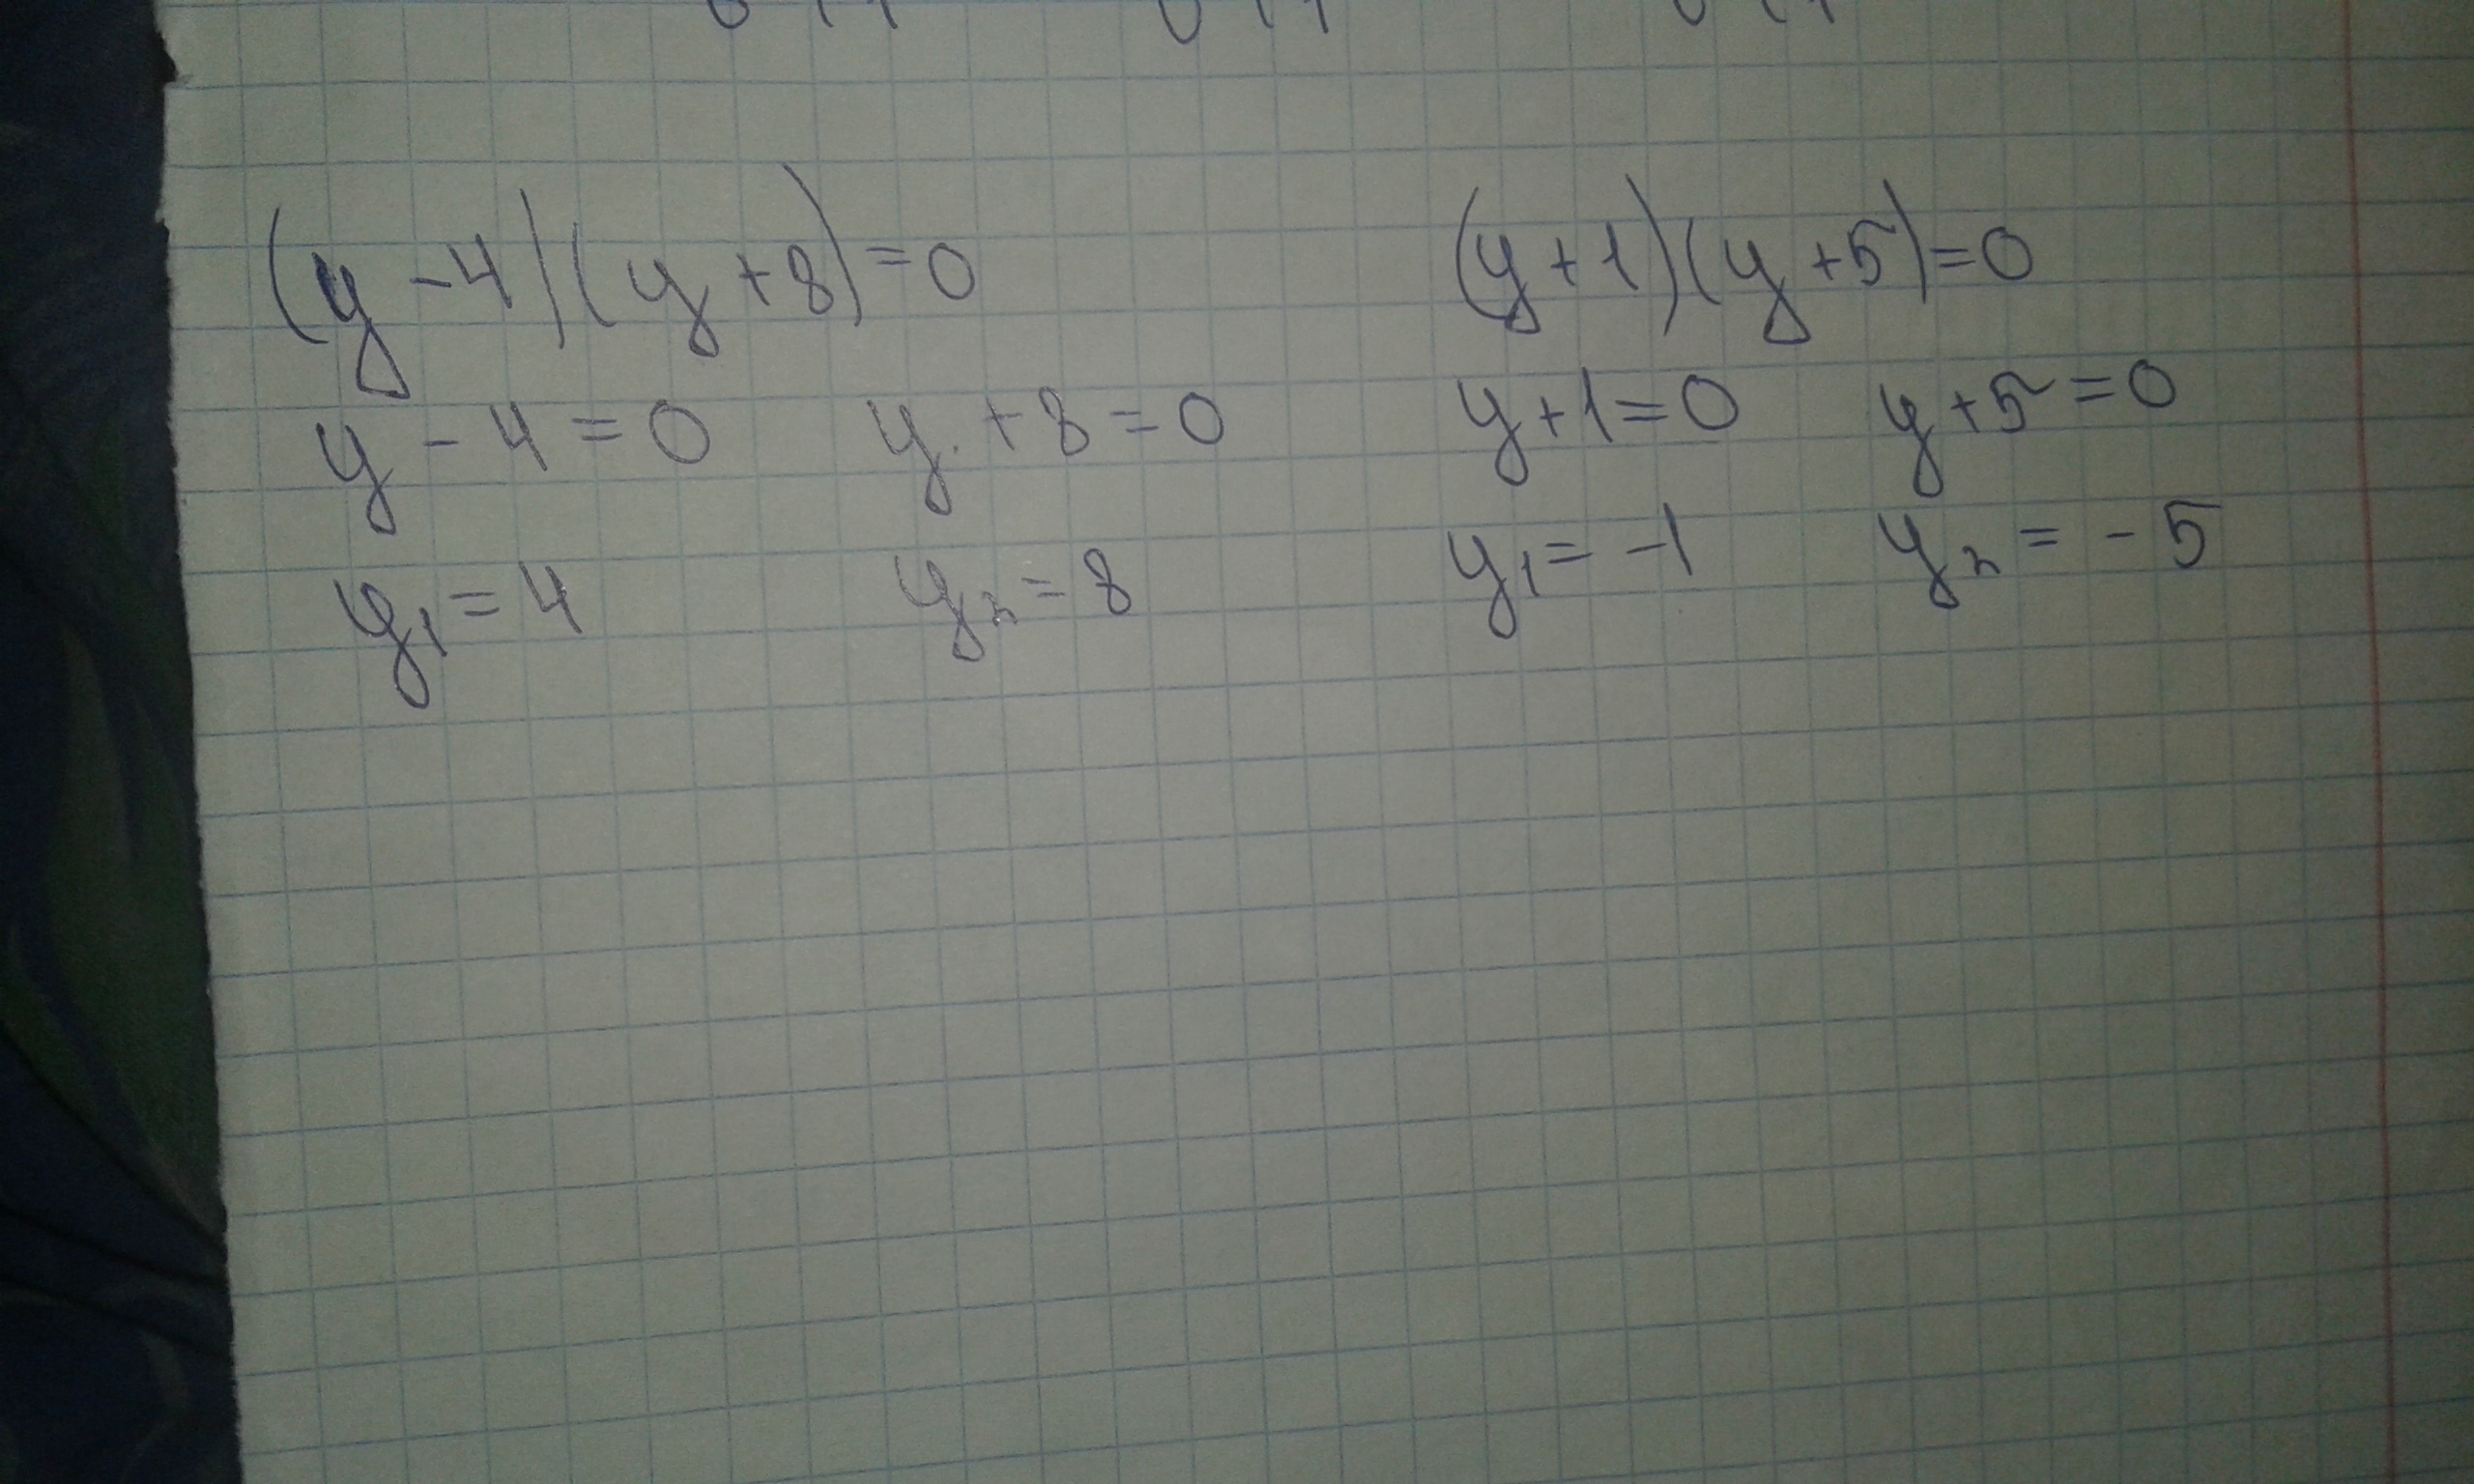 (y - 4)(y + 8) = 0
y - 4 = 0 y + 8 = 0
y₁ = 4 y₂ = 8
(y + 1)(y + 5) = 0
y + 1 = 0 y + 5 = 0
y₁ = -1 y₂ = -5